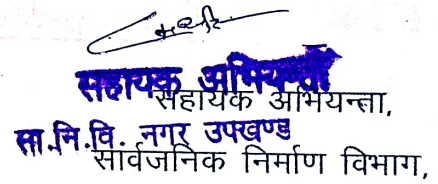 सहायक अभियन्ता
सहायक अभियन्ता,
सा.नि.वि. नगर उपखण्ड
सार्वजनिक निर्माण विभाग,